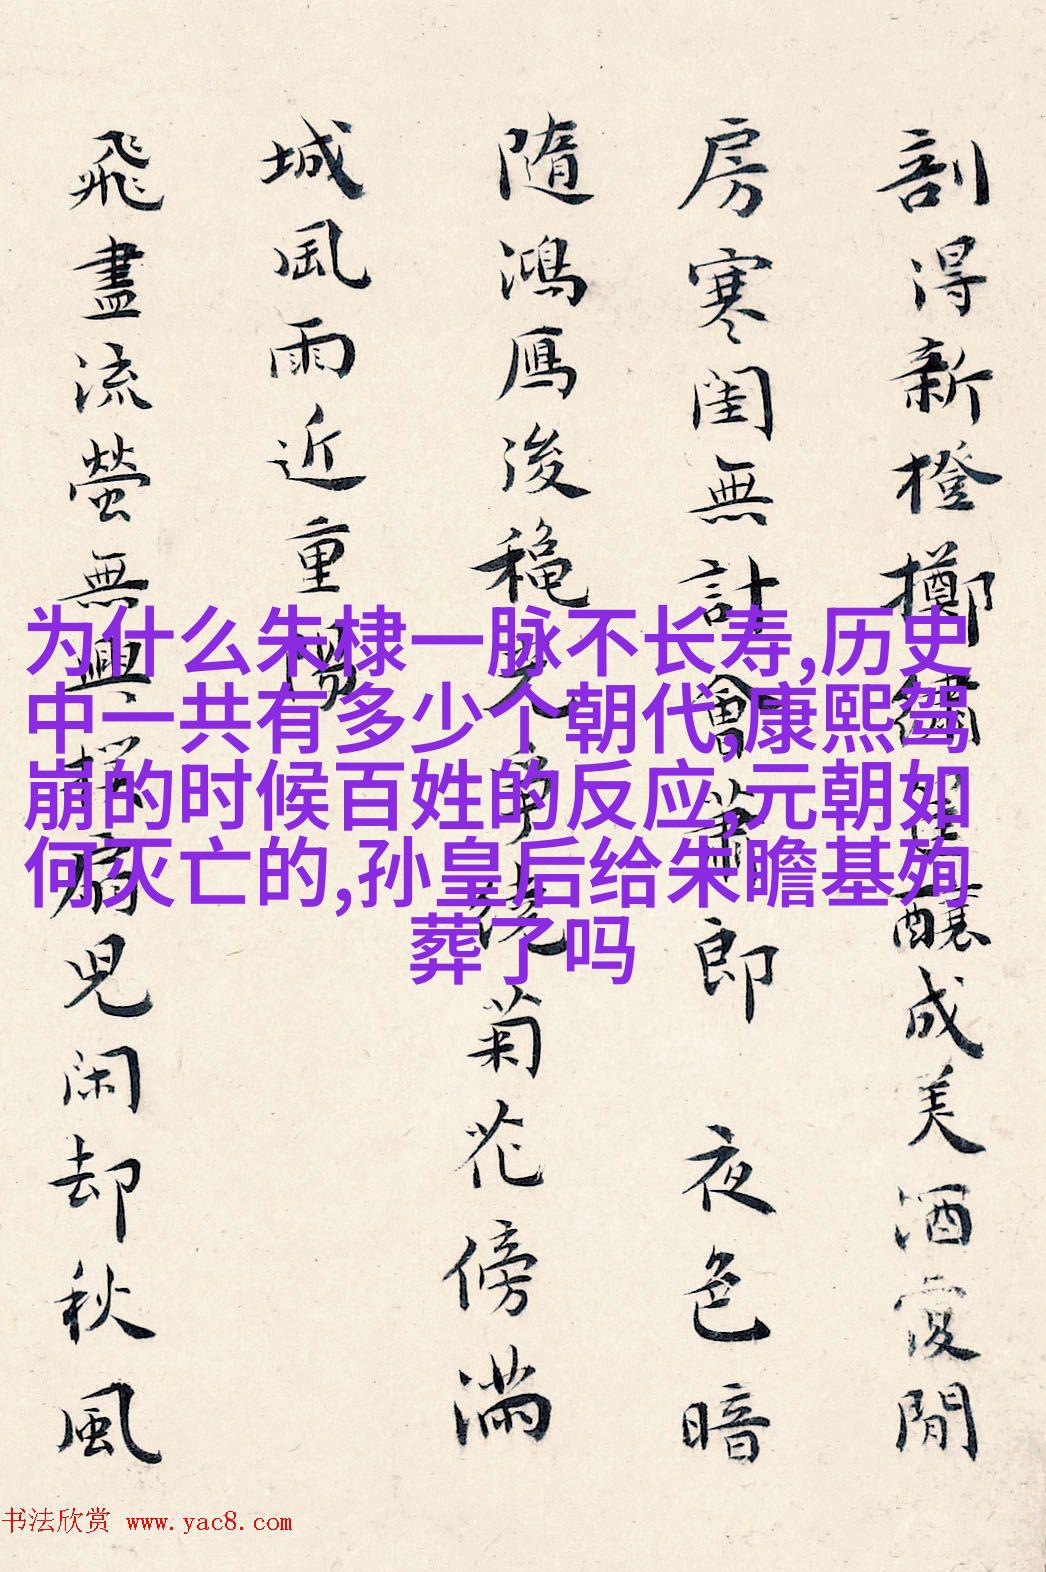 剖得新橙擲繡
醸成美酒復閒
房寒閨無計會蕭郎 夜色暗
隨鴻鴈後穐
爭繞菊花傍滿
城風雨近重陽
飛盡流螢無興
扇児闲却秋風
为什么朱棣一脉不长寿,历史
中一共有多少个朝代,康熙驾
崩的时候百姓的反应,元朝如
何灭亡的,孙皇后给朱瞻基殉
葬了吗
书法欣赏 www.yac8.com